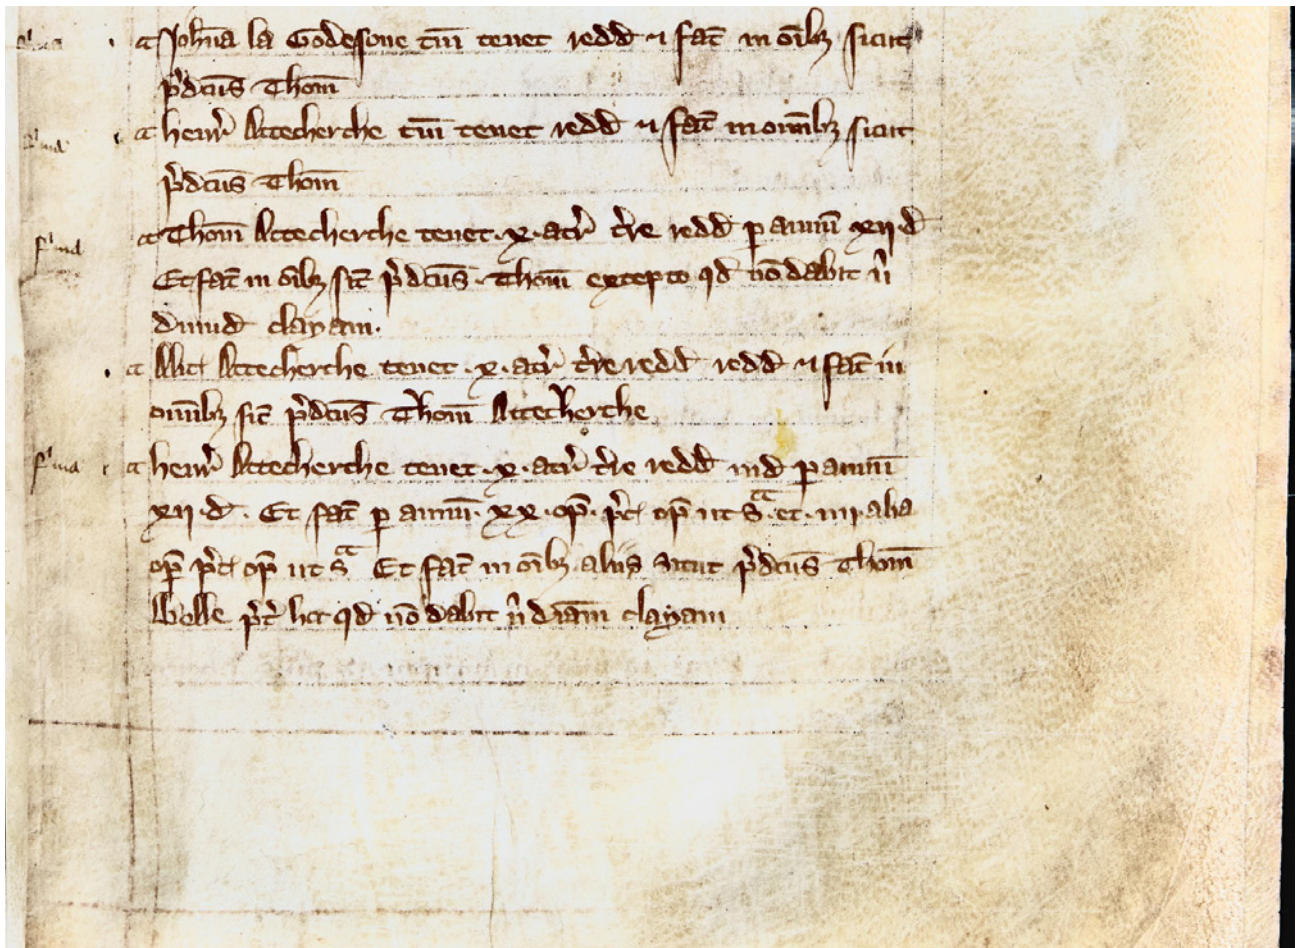 Joh̄na la Godesone tm̄ tenet redd̄ ⁊ fac̄ in ōibꝫ sicut
p̓dcūs Thom̄
henr̓ Attecherche tm̄ tenet redd̄ ⁊ fac̄ in om̄ibꝫ sicut
p̓dcūs Thom̄
Thom̄ Attecherche tenet .x. acr̓ t̓re redd̄ p annū xij.d̄
Et fac̄ in ōibꝫ sic̄ p̓dcūs . Thom̄ excepto qd̄ nō dabit n̓
dimid̄ clayam.
Alic̄ Attecherche tenet .x. acr̓ t̓re redd̄ redd̄ ⁊ fac̄ in
om̄ibꝫ sic̄ p̓dcūs Thom̄ Attecherche
henr̓ Attecherche tenet .x. acr̓ t̓re redd̄ ꝑ annū
xij.d̄. Et fac̄ ꝑ annū. xx. op̄. p̓c̄ op̄ ut sᵃ. et. iiij. alia
op̄ p̓c̄ op̄ ut sᵃ Et fac̄ in ōibꝫ aliis sicut p̓dcūs Thom̄
Belle p̓t̓ hoc qd̄ nō dabit n̓ diām clayam